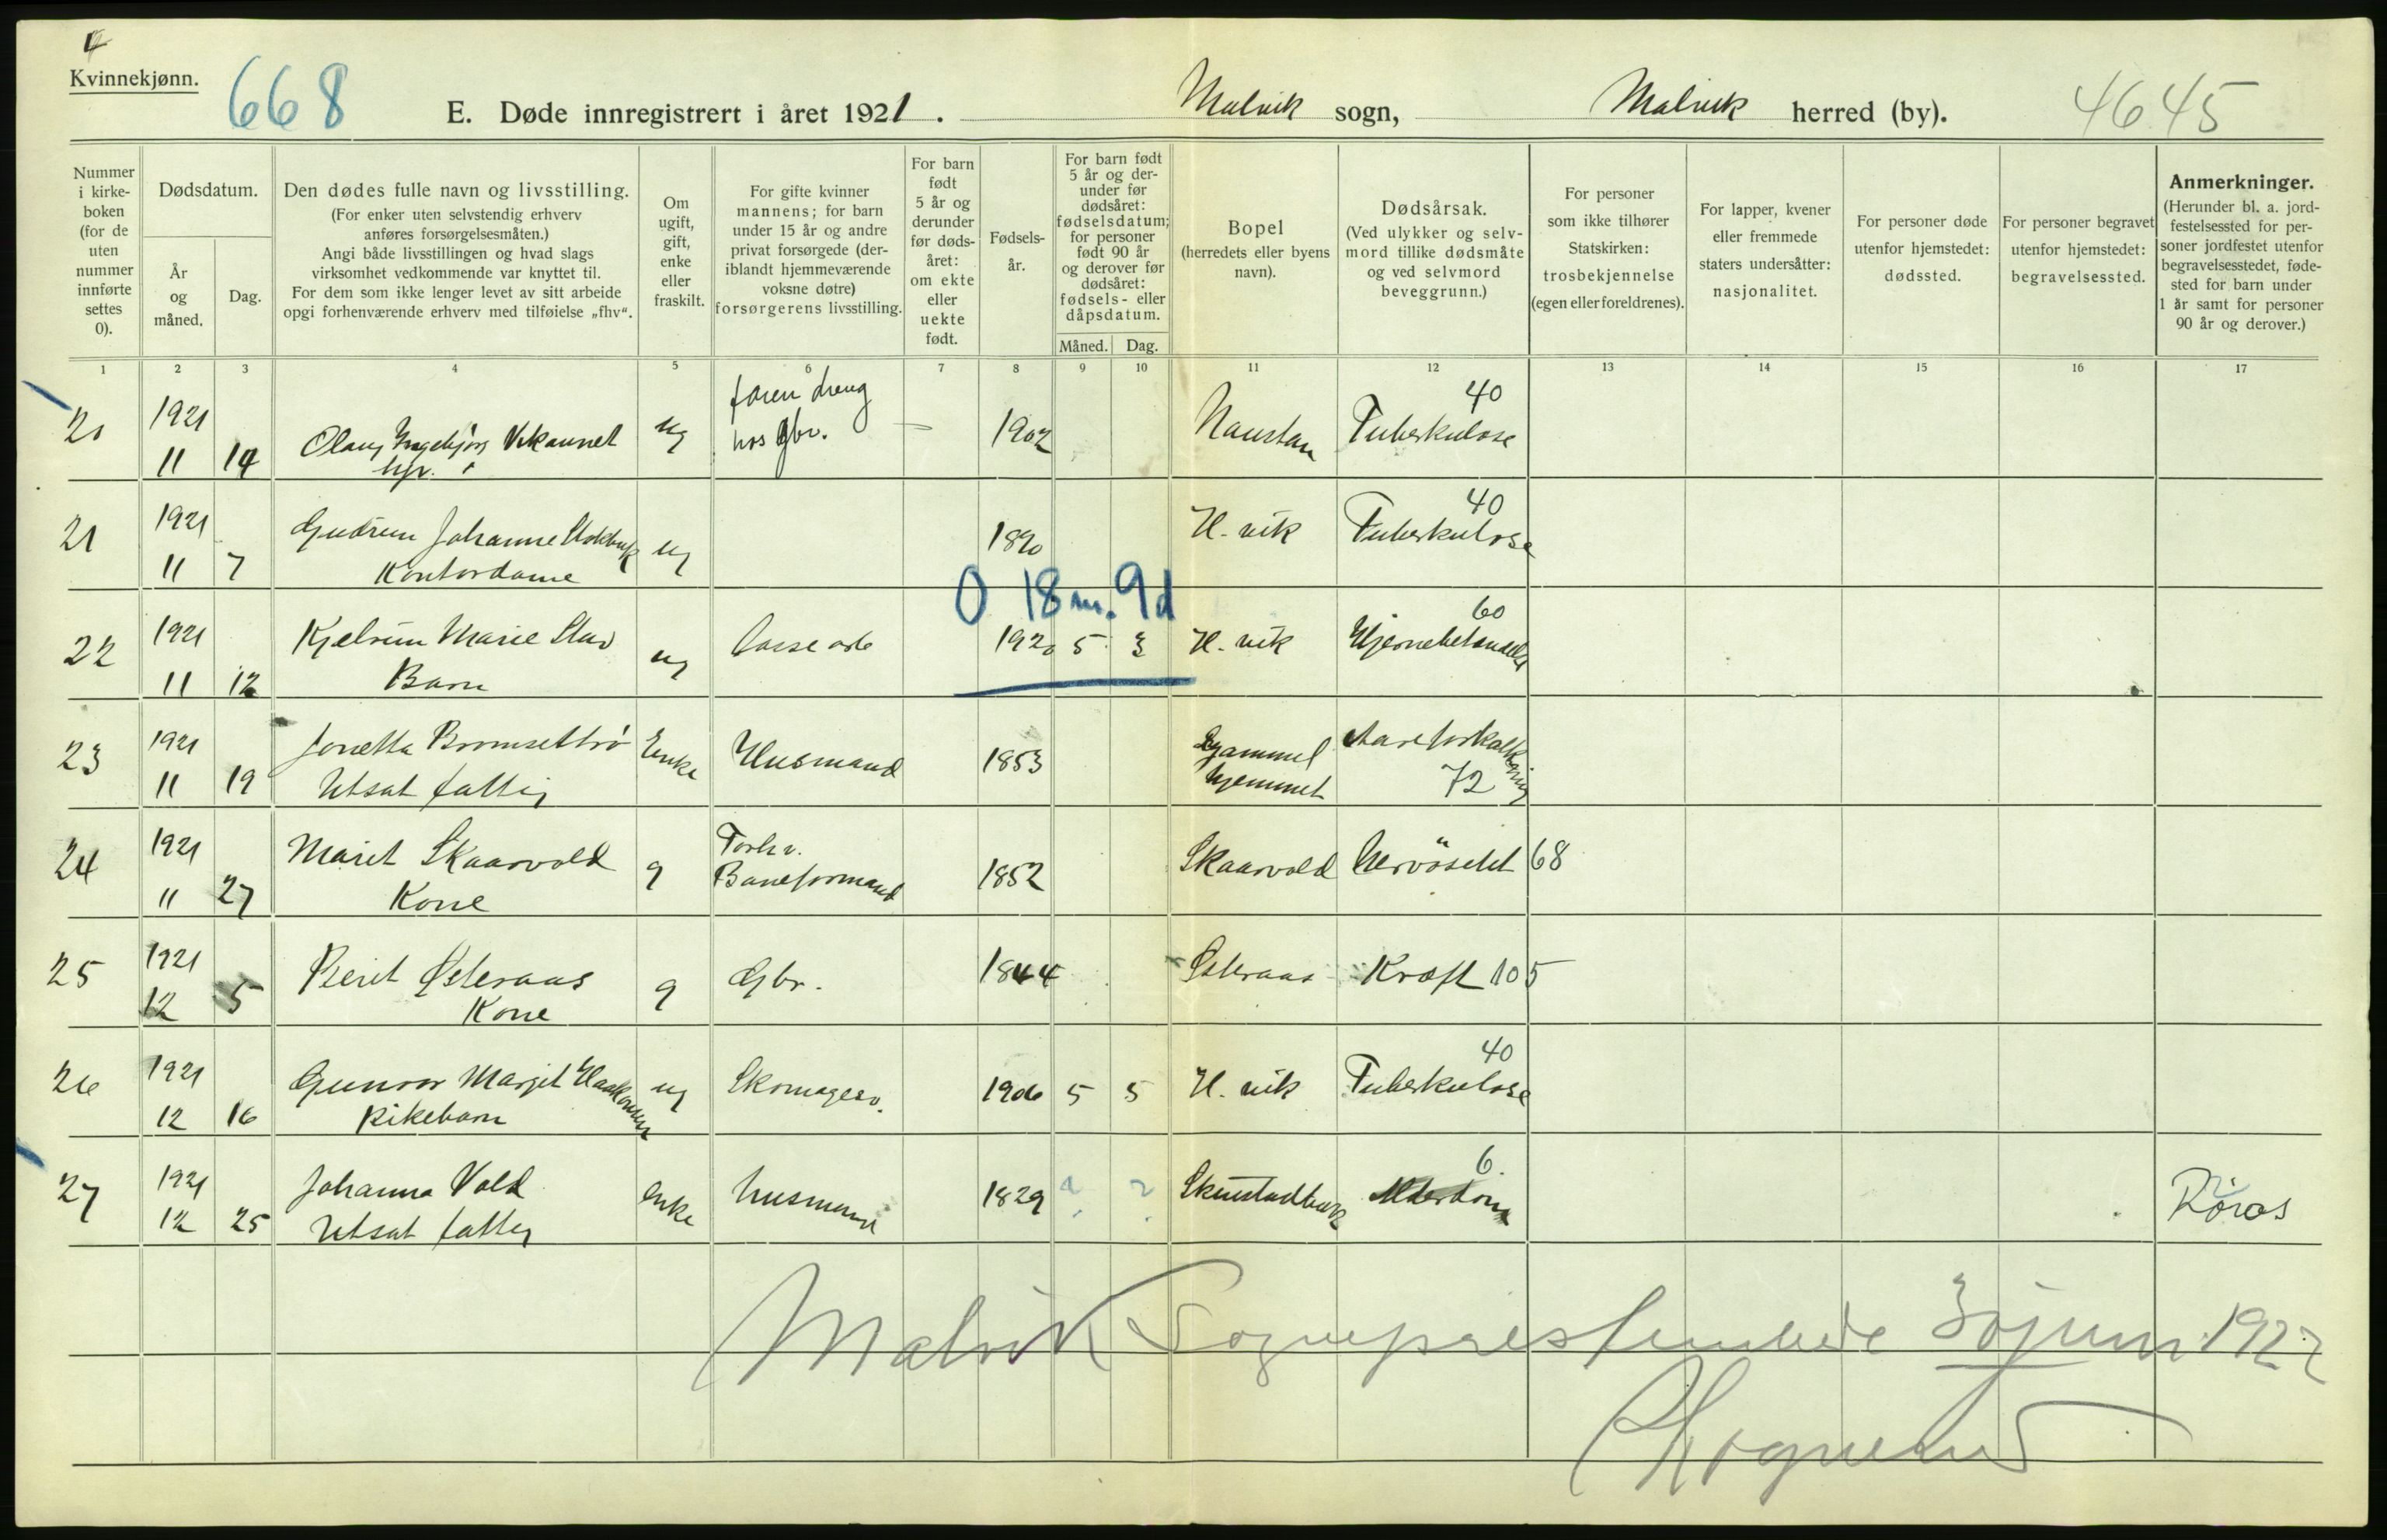 4
Kvinnekjønn.
668
E. Døde innregistrert i året 1921. Malvik sogn, Malvik herred (by).
4645
Nummer i kirke-boken (for de uten nummer innførte settes 0).
Dødsdatum.
År og måned.
Dag.
Den dødes fulle navn og livsstilling.
(For enker uten selvstendig erhverv anføres forsørgelsesmåten.)
Angi både livsstillingen og hvad slags virksomhet vedkommende var knyttet til.
For dem som ikke lenger levet av sitt arbeide opgi forhenværende erhverv med tilføielse „fhv“.
Om ugift, gift, enke eller fraskilt.
For gifte kvinner mannens; for barn under 15 år og andre privat forsørgede (der-iblandt hjemmeværende voksne døtre) forsørgerens livsstilling.
For barn født 5 år og derunder før døds-året: om ekte eller uekte født.
Fødsels-år.
For barn født 5 år og der-under før dødsåret: fødselsdatum; for personer født 90 år og derover før dødsåret: fødsels- eller dåpsdatum.
Måned. Dag.
Bopel
(herredets eller byens navn).
Dødsårsak.
(Ved ulykker og selv-mord tillike dødsmåte og ved selvmord beveggrunn.)
For personer som ikke tilhører Statskirken: trosbekjennelse (egen eller foreldrenes).
For lapper, kvener eller fremmede staters undersåtter: nasjonalitet.
For personer døde utenfor hjemstedet: dødssted.
For personer begravet utenfor hjemstedet: begravelsessted.
Anmerkninger.
(Herunder bl. a. jord-festelsessted for per-soner jordfestet utenfor begravelsesstedet, føde-sted for barn under 1 år samt for personer 90 år og derover.)
1 2 3 4 5 6 7 8 9 10 11 12 13 14 15 16 17
20 1921 11 14 Olaug Ingebjørg Vikaunet ug faren dreng hos gbr. — 1902 Naustan Tuberkulose 40
21 1921 11 7 Gudrun Johanne ug 1890 H. vik Tuberkulose 40
Kontordame
0 18 m. 9 d
22 1921 11 12 Kjelrun Marie Stav ug 1920 5 3 H. vik Hjernebetændelse 60
Barn
23 1921 11 19 Jonetta Bromsettrö Enke Husmand 1853 Gammel hjemmet Aareforkalkning 72
Utsat fattig
24 1921 11 27 Marit Skaarvold g Forhv. Baneformand 1852 Skaarvold Nervösitet 68
Kone
25 1921 12 5 Berit Østeraas g Gbr. 1844 Østeraas Kræft 105
Kone
26 1921 12 16 Gunvor Margit Haakonsen ug Skomager 1906 5 5 H. vik Tuberkulose 40
Pikebarn
27 1921 12 25 Johanna Vold Enke husmand 1829 ? ? Alderdom 6. Røros
Utsat fattig
Malvik Sogneprestembede 30 juni 1922